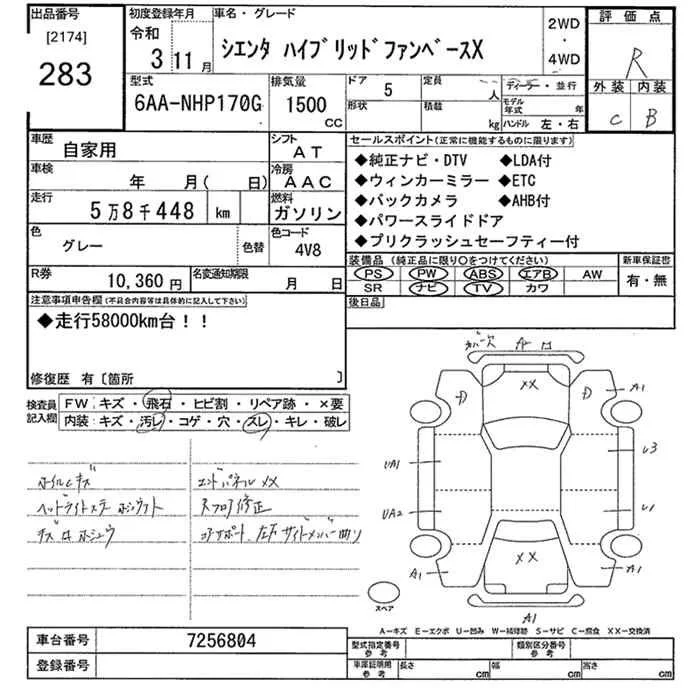 出品番号
[2174]
283
初度登録年月
令和
3 11 月
車名・グレード
シエンタ ハイブリッドファンベースX
2WD
・
4WD
評価点
R
外装 内装
C B
型式
6AA-NHP170G
排気量
1500
CC
ドア
5
形状
定員
人
積載
kg
ディーラー・並行
モデル年式 年
ハンドル 左・右
車歴
自家用
シフト
AT
車検
年 月( 日)
冷房
AAC
走行
5万8千448 km
燃料
ガソリン
色
グレー
色替
色コード
4V8
R券
10,360円
名変通知期限
月 日
セールスポイント(正常に機能するものに限ります)
◆純正ナビ・DTV ◆LDA付
◆ウィンカーミラー ◆ETC
◆バックカメラ ◆AHB付
◆パワースライドドア
◆プリクラッシュセーフティー付
装備品(純正品に限り○をつけてください)
PS PW ABS エアB AW
SR ナビ TV カワ
新車保証書
有・無
後日品
注意事項申告欄(不具合内容等は具体的に記入して下さい)
◆走行58000km台!!
修復歴 有〔箇所 〕
検査員
記入欄
FW: キズ・飛石・ヒビ割・リペア跡・×要
内装: キズ・汚レ・コゲ・穴・ズレ・キレ・破レ
ホイルキズ
エンドパネルXX
Sフロア修正
コアサポート、左右サイドメンバー曲り
XX
A1
U3
UA1
UA2
U1
XX
A1
A1
A1
スペア
A-キズ E-エクボ U-凹み W-補修跡 S-サビ C-腐食 XX-交換済
車台番号
7256804
登録番号
型式指定番号
参考
類別区分番号
参考
車庫証明用
参考
長さ cm 幅 cm 高さ cm